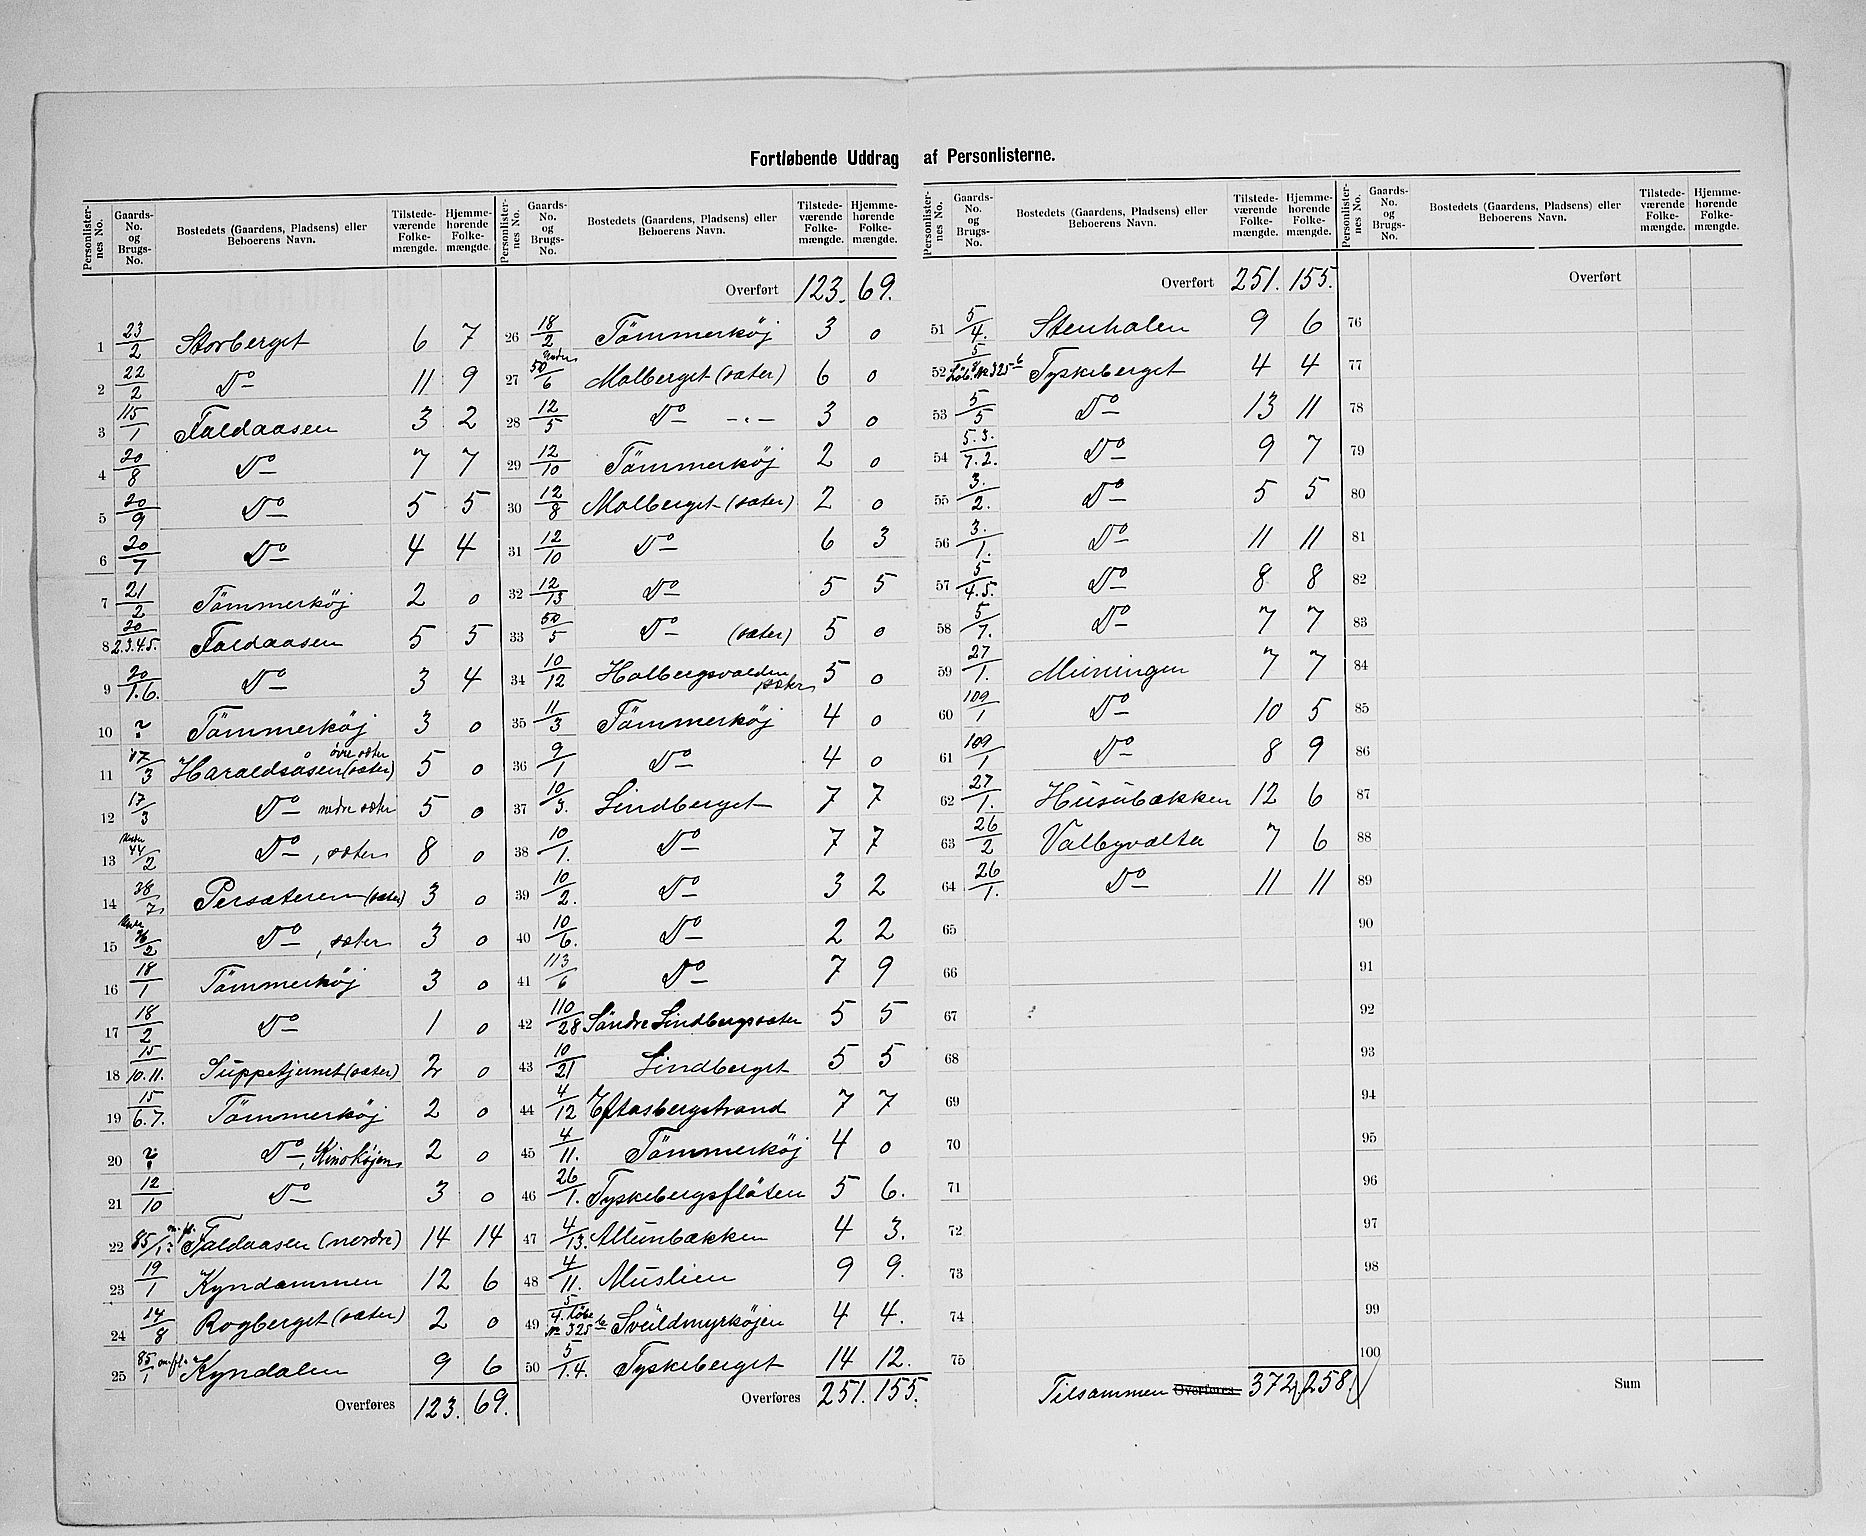 Fortløbende Uddrag af Personlisterne.
Personlister-nes No. | Gaards-No. og Brugs-No. | Bostedets (Gaardens, Pladsens) eller Beboerens Navn. | Tilstede-værende Folke-mængde. | Hjemme-hørende Folke-mængde.
1 23/2 Storberget 6 7
2 22/2 Do 11 9
3 115/1 Faldaasen 3 2
4 20/8 Do 7 7
5 20/9 Do 5 5
6 20/7 Do 4 4
7 21/2 Tömmerköj 2 0
8 20/2.3.4.5. Faldaasen 5 5
9 20/1.6. Do 3 4
10 ? Tömmerköj 3 0
11 17/3 Haraldsåsen (sæter) övre sæter 5 0
12 17/3 Do nedre sæter 5 0
13 Under 44/2 Do, sæter 8 0
14 38/7 Persæteren (sæter) 3 0
15 Under /2 Do, sæter 3 0
16 18/1 Tömmerköj 3 0
17 18/2 Do 1 0
18 15/10.11. Suppetjernet (sæter) 2 0
19 15/6.7. Tömmerköj 2 0
20 ? Do, Kinoköjen 2 0
21 12/10 Do 3 0
22 85/1 m.fl. Faldaasen (nordre) 14 14
23 19/1 Kyndammen 12 6
24 14/8 Rogberget (sæter) 2 0
25 85/1 m.fl. Kyndalen 9 6
Overføres 123. 69.
Personlister-nes No. | Gaards-No. og Brugs-No. | Bostedets (Gaardens, Pladsens) eller Beboerens Navn. | Tilstede-værende Folke-mængde. | Hjemme-hørende Folke-mængde.
Overført 123. 69.
26 18/2 Tömmerköj 3 0
27 Under 50/6 Malberget (sæter) 6 0
28 12/5 Do -"- 3 0
29 12/10 Tömmerköj 2 0
30 12/8 Malberget (sæter) 2 0
31 12/10 Do 6 3
32 12/13 Do 5 5
33 50/5 Do (sæter) 5 0
34 10/12 Halbergsvalden, sæter 5 0
35 11/3 Tömmerköj 4 0
36 9/1 Do 4 0
37 10/3. Lindberget 7 7
38 10/1. Do 7 7
39 10/2. Do 3 2
40 10/6. Do 2 2
41 113/6 Do 7 9
42 110/28 Söndre Lindbergsæter 5 5
43 10/21 Lindberget 5 5
44 4/12 Eftasbergstrand 7 7
45 4/11. Tömmerköj 4 0
46 26/1. Tyskebergsflöten 5 6.
47 4/13. Allmbakken 4 3.
48 4/11. Muslien 9 9.
49 5/4. Löbe № 325 b Sveildmyrköjen 4 4.
50 5/1.4. Tyskeberget 14 12.
Overføres 251. 155.
Personlister-nes No. | Gaards-No. og Brugs-No. | Bostedets (Gaardens, Pladsens) eller Beboerens Navn. | Tilstede-værende Folke-mængde. | Hjemme-hørende Folke-mængde.
Overført 251. 155.
51 5/4. Stenhalen 9 6
52 5/4 Löb.№ 325 b Tyskeberget 4 4
53 5/5 Do 13 11
54 5.3./7.2. Do 9 7
55 3./2. Do 5 5
56 3./1. Do 11 11
57 5/4.5. Do 8 8
58 5/7. Do 7 7
59 27/1. Meiningen 7 7
60 109/1 Do 10 5
61 109/1 Do 8 9
62 27/1. Husubækken 12 6
63 26/2 Valbyvalta 7 6
64 26/1. Do 11 11
65
66
67
68
69
70
71
72
73
74
75
Tilsammen Overføres 372 258
Personlister-nes No. | Gaards-No. og Brugs-No. | Bostedets (Gaardens, Pladsens) eller Beboerens Navn. | Tilstede-værende Folke-mængde. | Hjemme-hørende Folke-mængde.
Overført
76
77
78
79
80
81
82
83
84
85
86
87
88
89
90
91
92
93
94
95
96
97
98
99
100
Sum